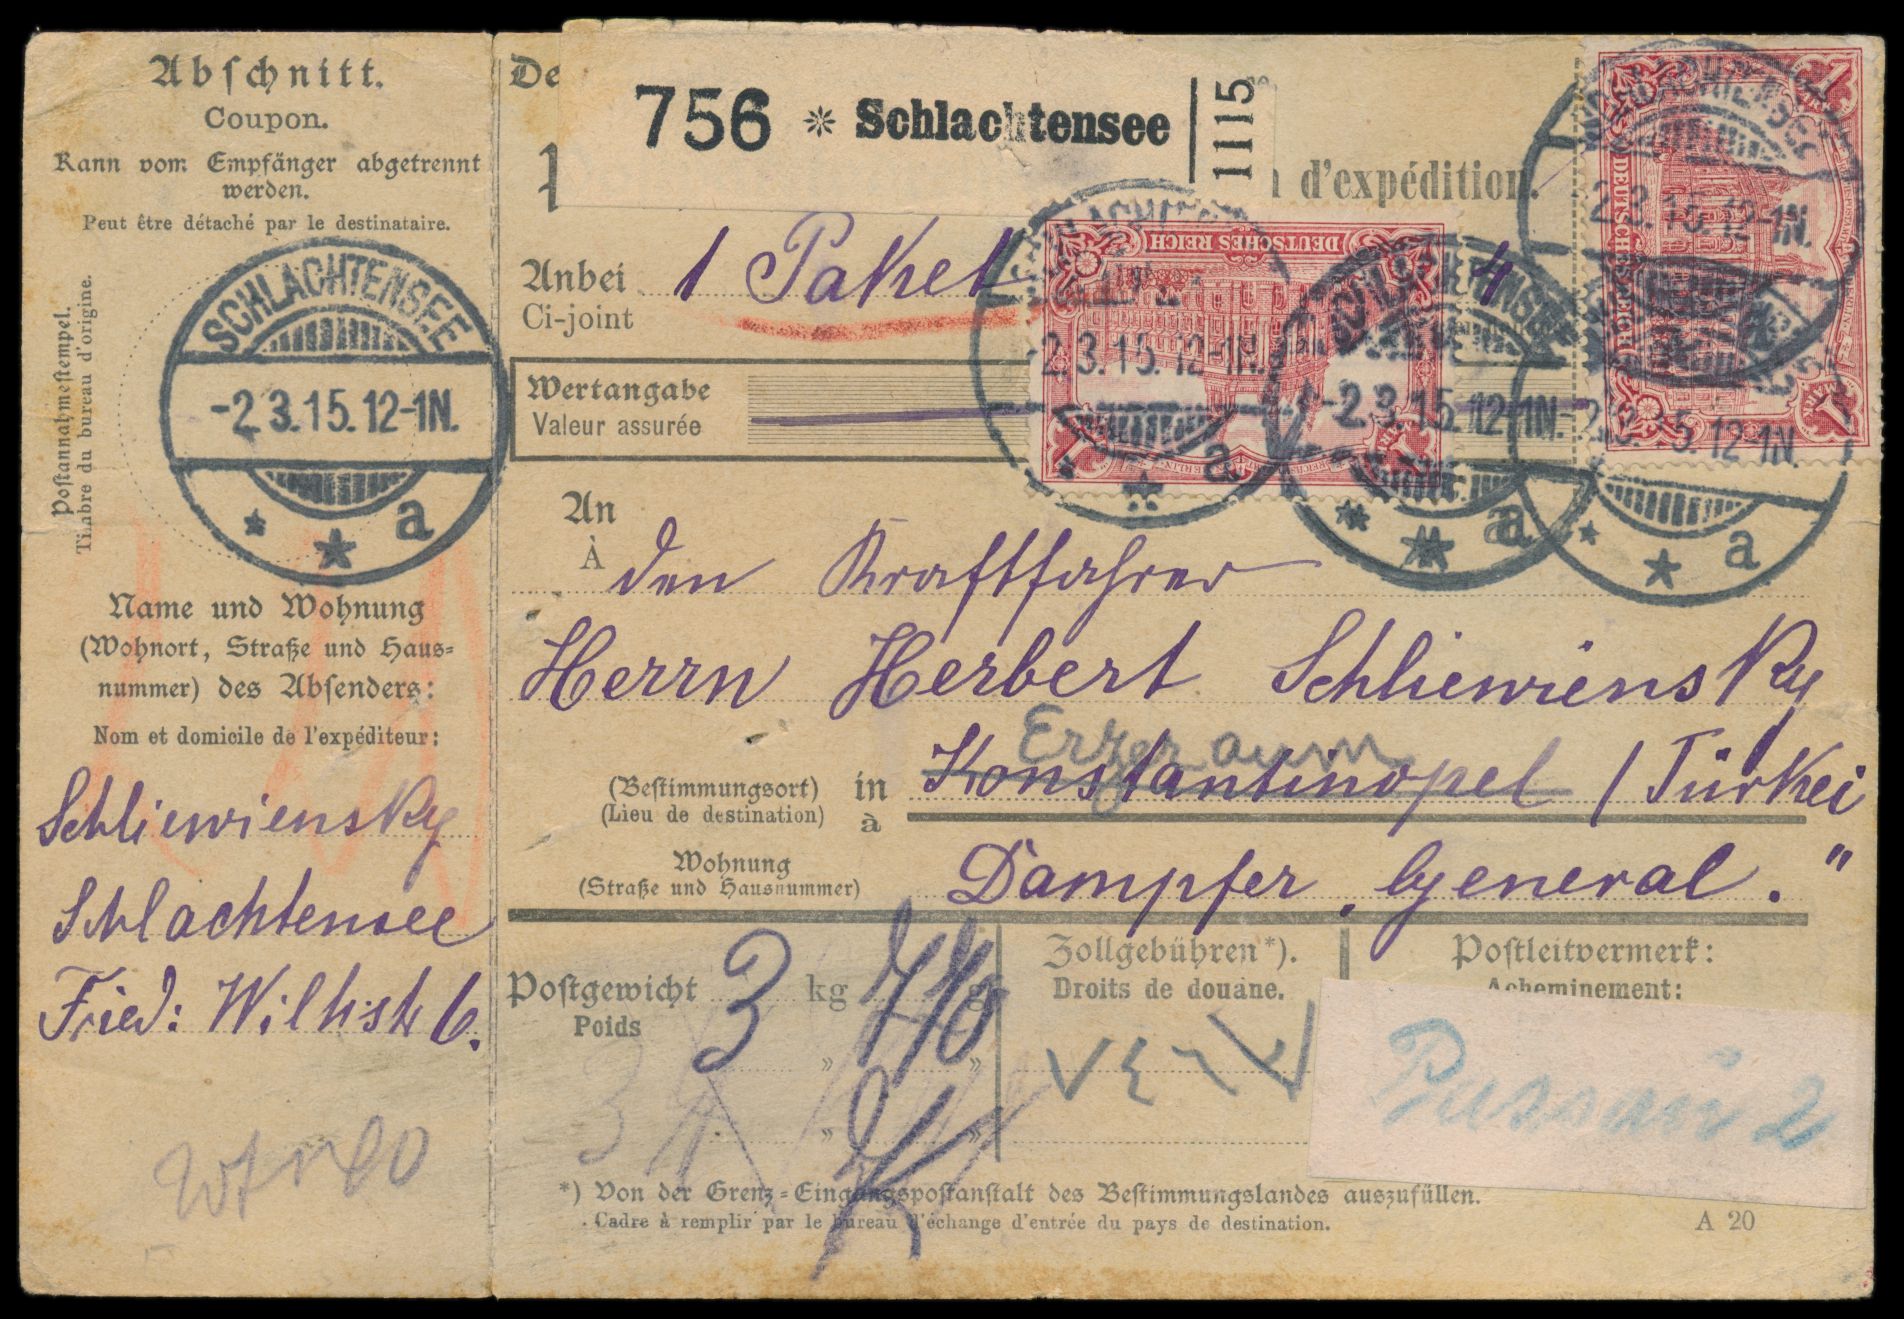 Abschnitt.
Coupon.
Kann vom Empfänger abgetrennt
werden.
Peut être détaché par le destinataire.
Postannahmestempel.
Timbre du bureau d'origine.
SCHLACHTENSEE
-2.3.15.12-1N.
* * a
Name und Wohnung
(Wohnort, Straße und Haus-
nummer) des Absenders:
Nom et domicile de l'expéditeur:
Schliewiensky
Schlachtensee
Fried: Wilh. str 6.
De
756 * Schlachtensee 1115
d'expédition.
Anbei 1 Paket 4
Ci-joint
Wertangabe
Valeur assurée
DEUTSCHES REICH
-2.3.15.12-1N.
a
-2.3.15.12-1N.
a
DEUTSCHES REICH
SCHLACHTENSEE
-2.3.15.12-1N.
-2.3.15.12-1N.
a
An
À
den Kraftfahrer
Herrn Herbert Schliewiensky
Erzeroum
(Bestimmungsort) in Konstantinopel / Türkei
(Lieu de destination) à
Wohnung
(Straße und Hausnummer) Dampfer „General."
Postgewicht 3 kg g
Poids
Zollgebühren*).
Droits de douane.
٧٤٦٧
Postleitvermerk:
Acheminement:
Passau 2
*) Von der Grenz-Eingangspostanstalt des Bestimmungslandes auszufüllen.
Cadre à remplir par le bureau d'échange d'entrée du pays de destination.
A 20